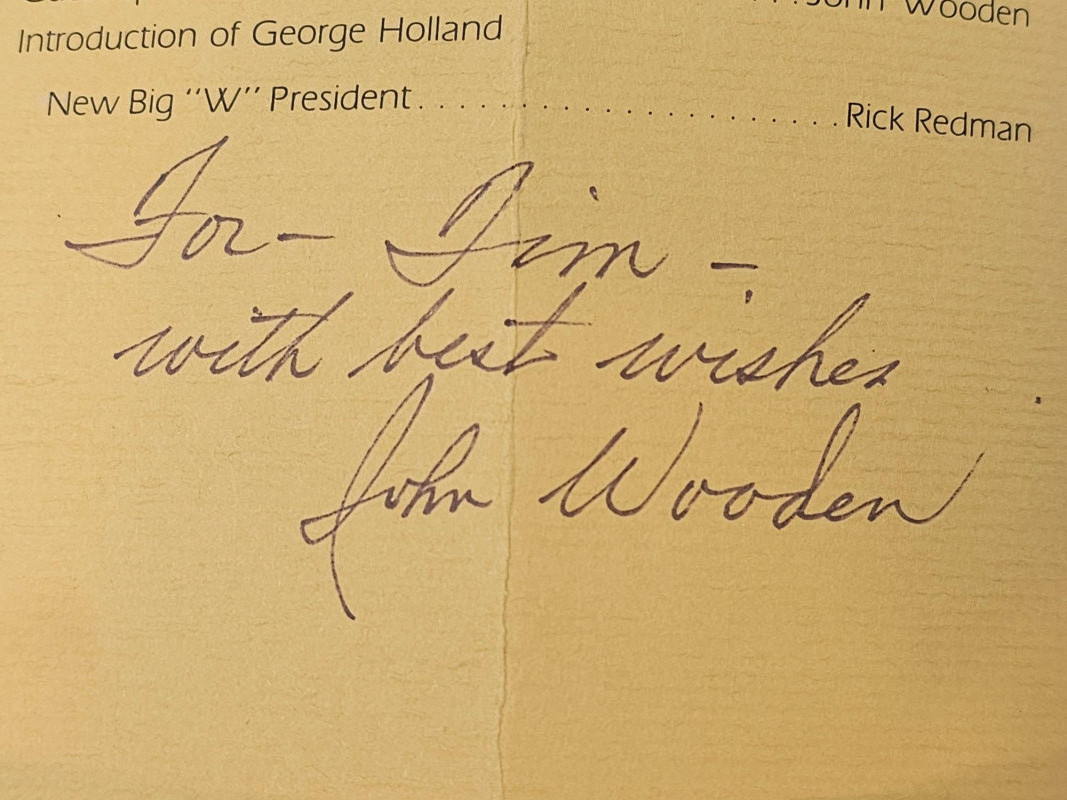 John Wooden
Introduction of George Holland
New Big "W" President. . . . . . . . . . . . . . . . . . . . . . . . . . . Rick Redman
For- Tim -
with best wishes
John Wooden